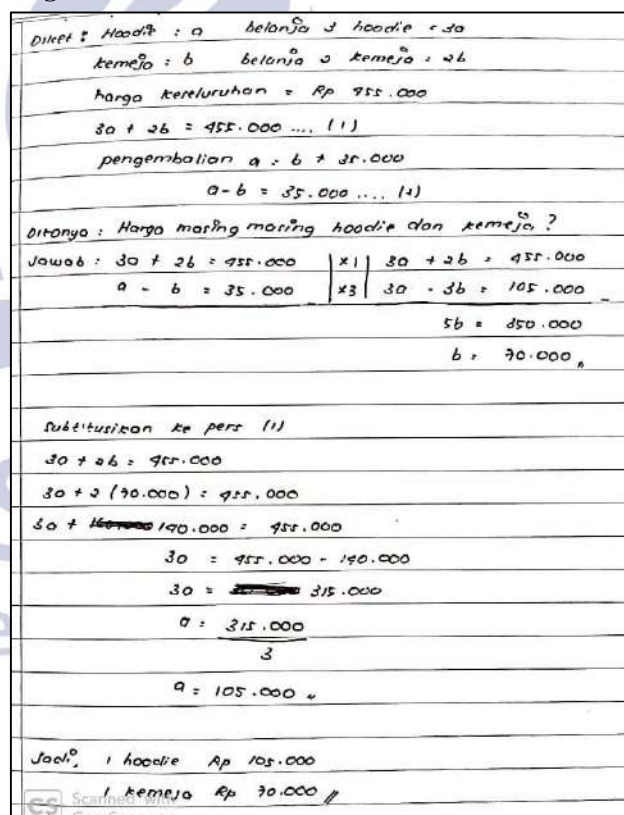 Diket : Hoodie : a belanja 3 hoodie = 3a
kemeja : b belanja 2 kemeja : 2b
harga keseluruhan = Rp 455.000
3a + 2b = 455.000 .... (1)
pengembalian a = b + 35.000
a - b = 35.000 .... (2)
Ditanya : Harga masing masing hoodie dan kemeja ?
Jawab : 3a + 2b = 455.000 | x1 | 3a + 2b = 455.000
a - b = 35.000 | x3 | 3a - 3b = 105.000 -
5b = 350.000
b = 70.000 //
Subtitusikan ke pers (1)
3a + 2b = 455.000
3a + 2 (70.000) = 455.000
3a + 140.000 = 455.000
3a = 455.000 - 140.000
3a = 315.000
a = 315.000
3
a = 105.000 //
Jadi, 1 hoodie Rp 105.000
1 kemeja Rp 70.000 //
CS Scanned with